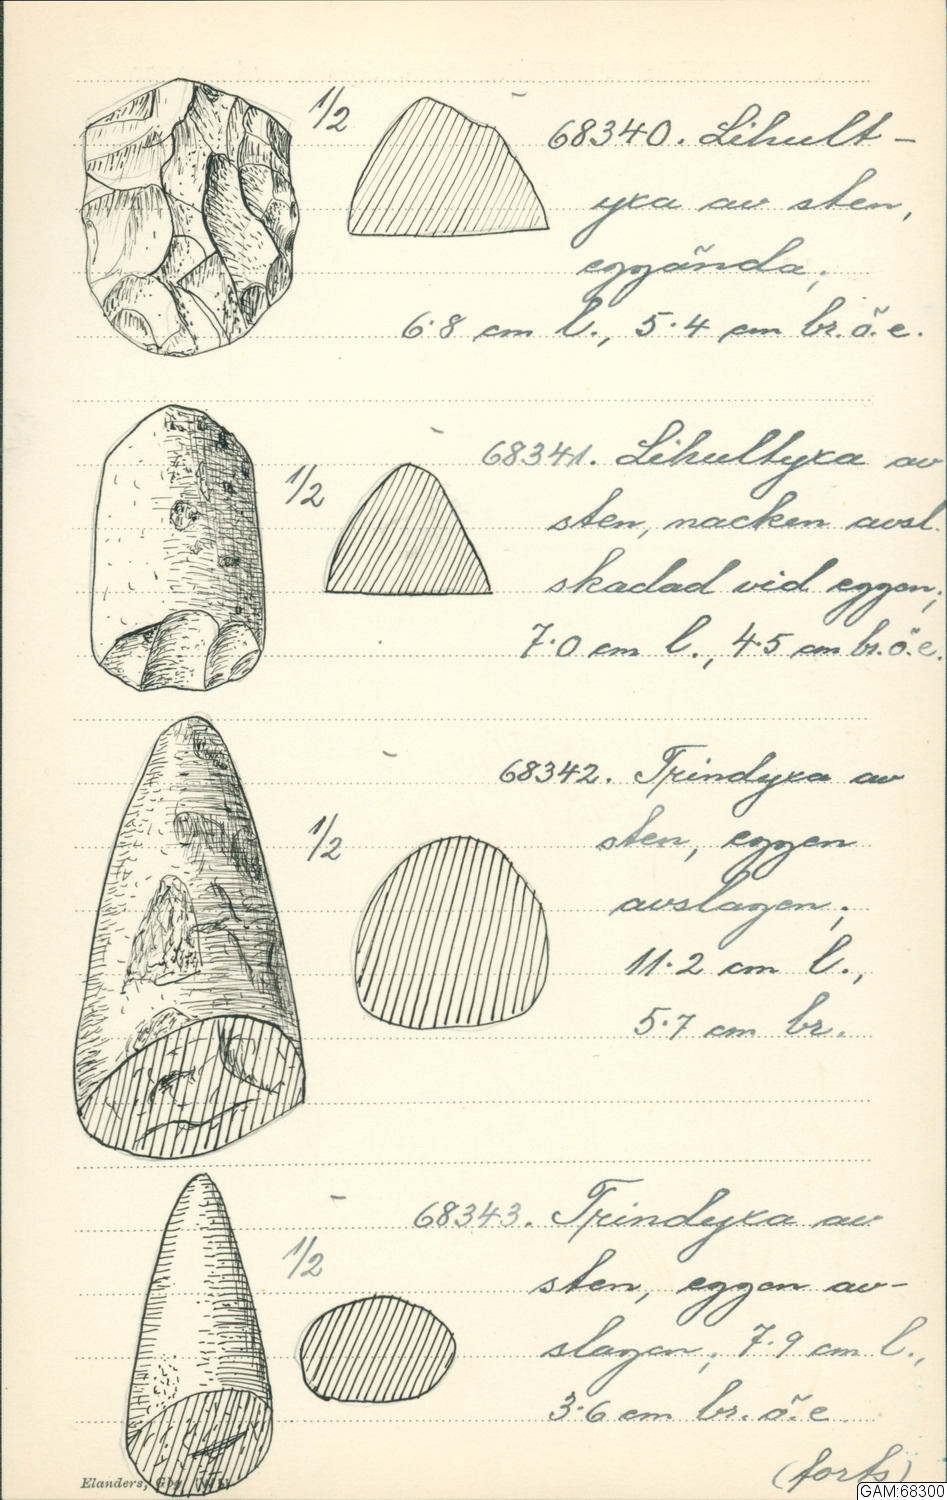 1/2
68340. Lihult-
yxa av sten,
eggända;
6.8 cm l., 5.4 cm br. ö. e.
1/2
68341. Lihultyxa av
sten, nacken avsl.
skadad vid eggen;
7.0 cm l., 4.5 cm br. ö. e.
1/2
68342. Trindyxa av
sten, eggen
avslagen;
11.2 cm l.,
5.7 cm br.
1/2
68343. Trindyxa av
sten, eggen av-
slagen; 7.9 cm l.,
3.6 cm br. ö. e.
(forts)
Elanders, Gbg
GAM:68300